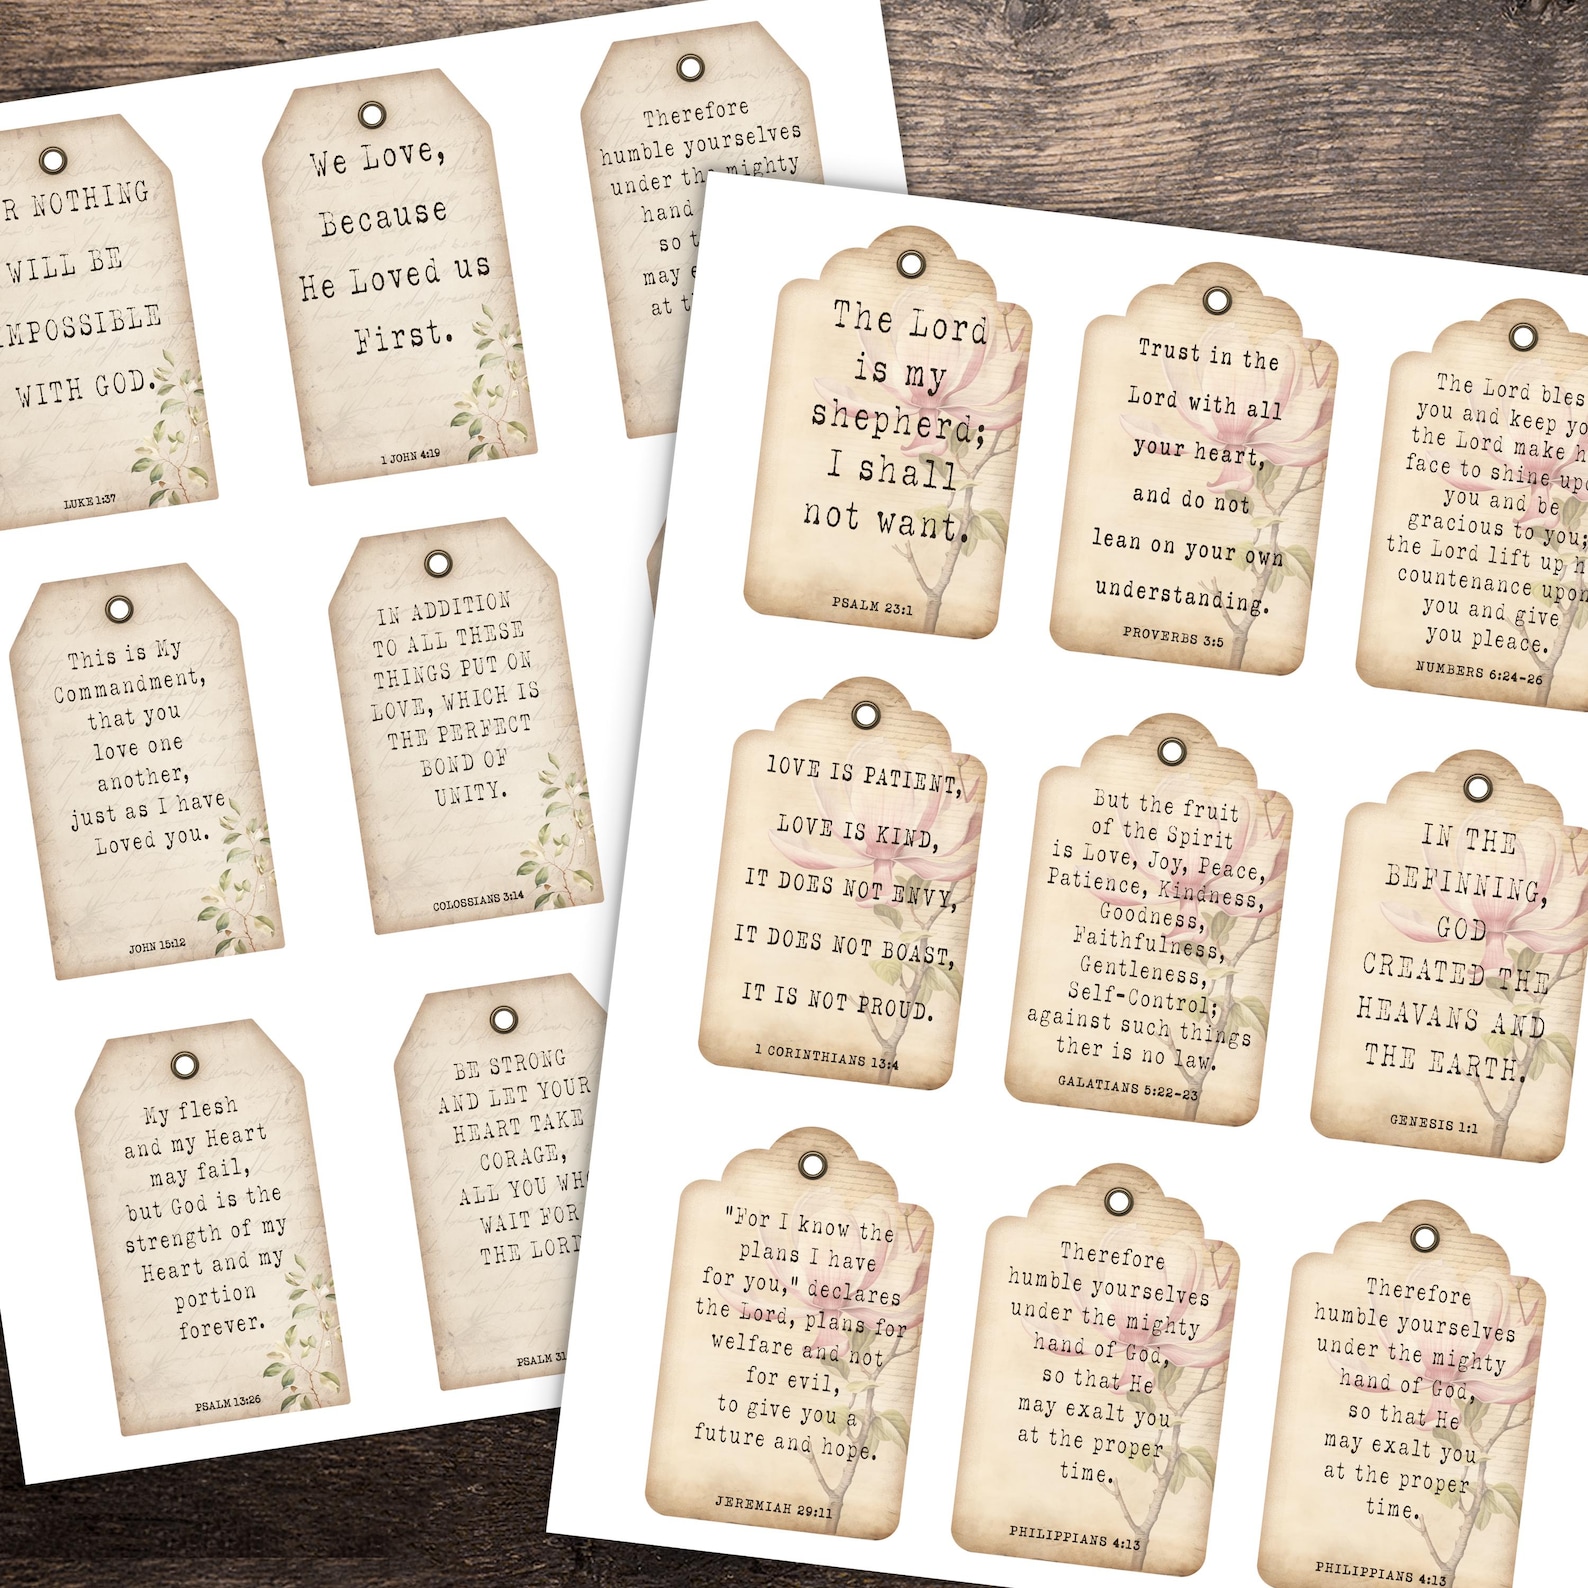 R NOTHING
WILL BE
IMPOSSIBLE
WITH GOD.
LUKE 1:37
We Love,
Because
He Loved us
First.
1 JOHN 4:19
Therefore
humble yourselves
under the mighty
hand
so t
may e
at t
This is My
Commandment,
that you
love one
another,
just as I have
Loved you.
JOHN 15:12
IN ADDITION
TO ALL THESE
THINGS PUT ON
LOVE, WHICH IS
THE PERFECT
BOND OF
UNITY.
COLOSSIANS 3:14
My flesh
and my Heart
may fail,
but God is the
strength of my
Heart and my
portion
forever.
PSALM 13:26
BE STRONG
AND LET YOUR
HEART TAKE
CORAGE,
ALL YOU WH
WAIT FOR
THE LORD
PSALM 31
The Lord
is my
shepherd;
I shall
not want.
PSALM 23:1
Trust in the
Lord with all
your heart,
and do not
lean on your own
understanding.
PROVERBS 3:5
The Lord bles
you and keep yo
the Lord make h
face to shine upo
you and be
gracious to you;
the Lord lift up h
countenance upon
you and give
you pleace.
NUMBERS 6:24-26
lOVE IS PATIENT,
LOVE IS KIND,
IT DOES NOT ENVY,
IT DOES NOT BOAST,
IT IS NOT PROUD.
1 CORINTHIANS 13:4
But the fruit
of the Spirit
is Love, Joy, Peace,
Patience, Kindness,
Goodness,
Faithfulness,
Gentleness,
Self-Control;
against such things
ther is no law.
GALATIANS 5:22-23
IN THE
BEFINNING,
GOD
CREATED THE
HEAVANS AND
THE EARTH.
GENESIS 1:1
"For I know the
plans I have
for you," declares
the Lord, plans for
welfare and not
for evil,
to give you a
future and hope.
JEREMIAH 29:11
Therefore
humble yourselves
under the mighty
hand of God,
so that He
may exalt you
at the proper
time.
PHILIPPIANS 4:13
Therefore
humble yourselves
under the mighty
hand of God,
so that He
may exalt you
at the proper
time.
PHILIPPIANS 4:13